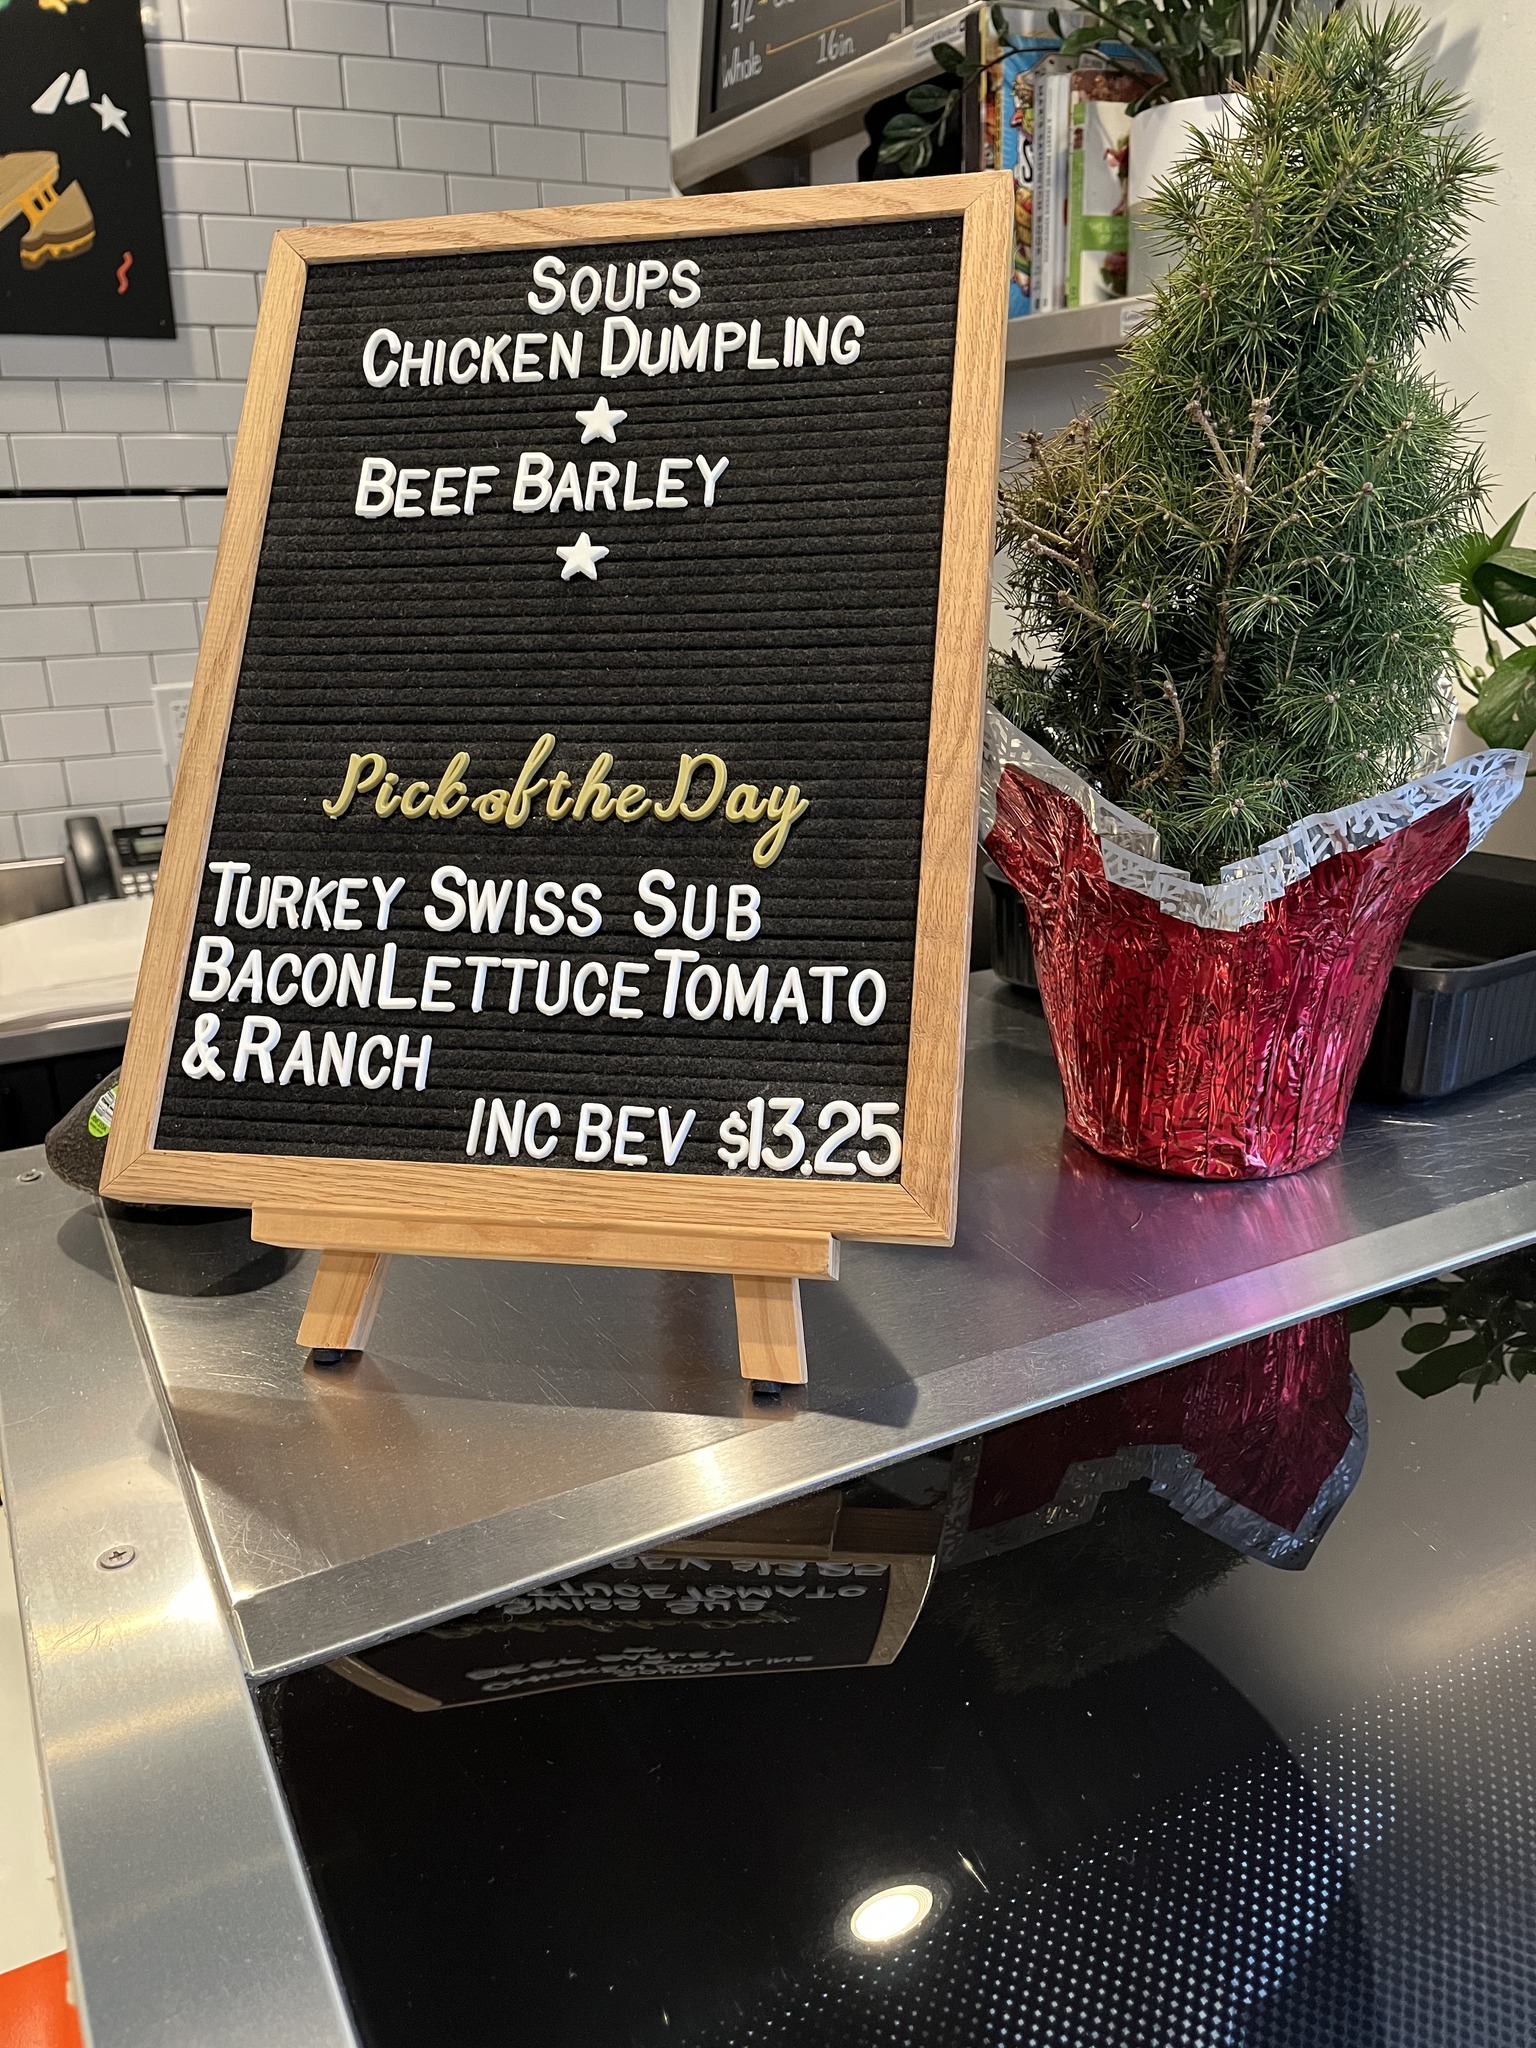 Whole 16in
SOUPS
CHICKEN DUMPLING
BEEF BARLEY
Pick of the Day
TURKEY SWISS SUB
BACON LETTUCE TOMATO
& RANCH
INC BEV $13.25